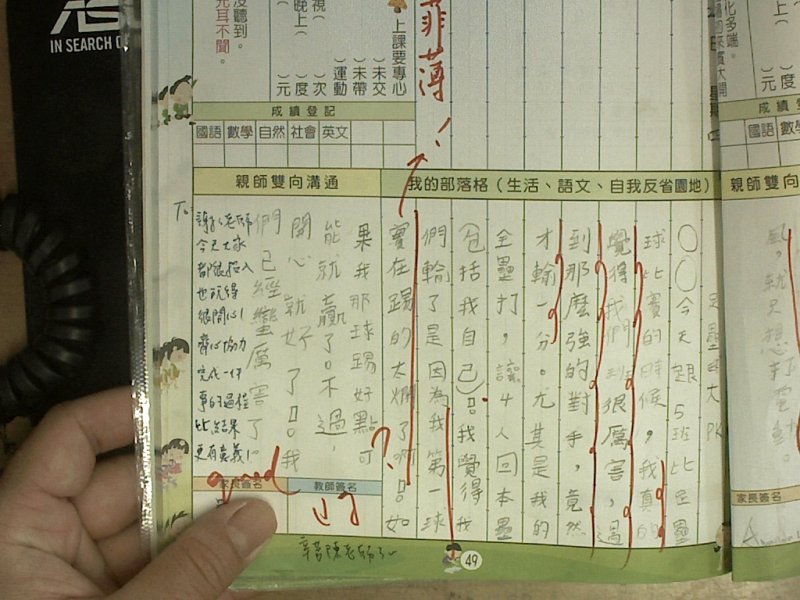 IN SEARCH O
沒聽到。
充耳不聞。
視(
晚上(
)元
)度
)次
)運動
)未帶
)未交
上課要專心
菲薄!
成績登記
國語 數學 自然 社會 英文
親師雙向溝通
我的部落格(生活、語文、自我反省園地)
足壘球大PK
○○今天跟5班比足壘
球比賽的時候,我真的
覺得我們班很厲害,遇
到那麼強的對手,竟然
才輸一分。尤其是我的
全壘打,讓4人回本壘
(包括我自己)。我覺得我
們輸了是因為我第一球
實在踢的太爛了啊!。如
果我那球踢好點可
能就贏了。不過,
開心就好了!。我
們已經蠻厲害了!。
?
To:
謝謝老師
今天大家
都很投入
也玩得
很開心!
齊心協力
完成一件
事的過程
比結果
更有意義!
家長簽名
教師簽名
good
辛苦陳老師了~
49
化多端。
成績登
國語 數學
親師雙
家長簽名